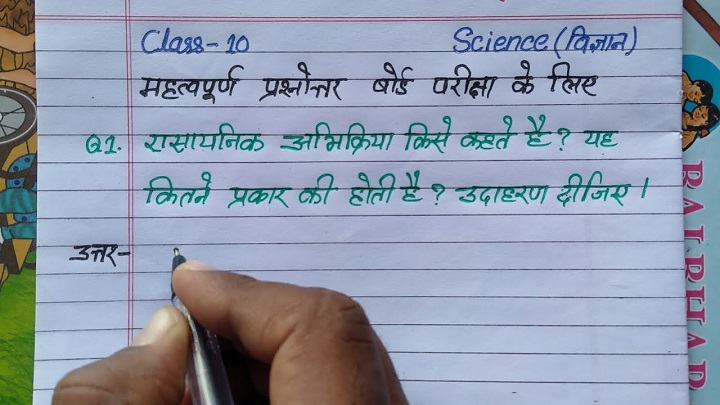 Class-10 Science (विज्ञान)
महत्वपूर्ण प्रश्नोत्तर बोर्ड परीक्षा के लिए
Q1. रासायनिक अभिक्रिया किसे कहते है? यह
कितने प्रकार की होती है? उदाहरण दीजिए।
उत्तर-
BALBHAR